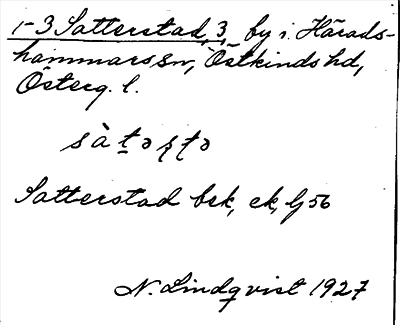 1-3 Satterstad, 3, by i Härads-
hammars sn, Östkinds hd,
Österg. l.
sàtəʂʈə
Satterstad bsk, ek, Gj 56
N. Lindqvist 1927